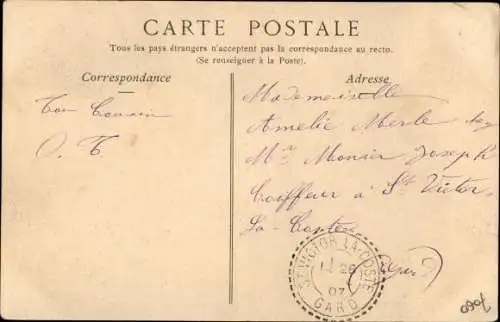 CARTE POSTALE
Tous les pays étrangers n'acceptent pas la correspondance au recto.
(Se renseigner à la Poste).
Correspondance
Adresse
Ton Cousin
O. T
Mademoiselle
Amelie Merle
Mr Monier Joseph
Coiffeur à St Victor
La-Coste
(Gard)
ST VICTOR-LA-COSTE
26
07
GARD